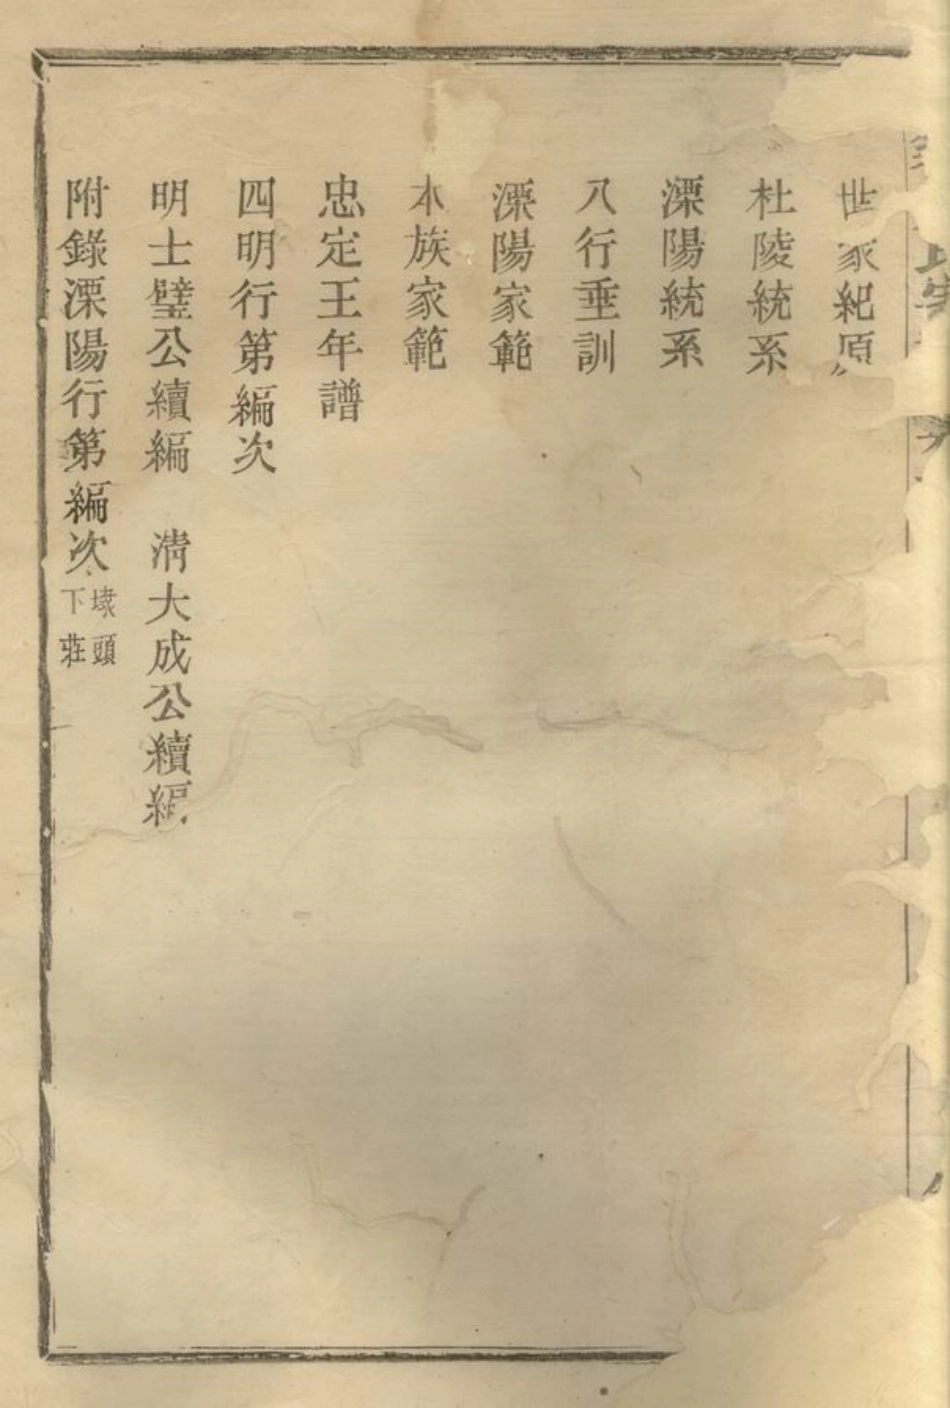 世家紀原
杜陵統系
溧陽統系
八行垂訓
溧陽家範
本族家範
忠定王年譜
四明行第編次
明士璧公續編　清大成公續編
附錄溧陽行第編次
埭頭
下莊